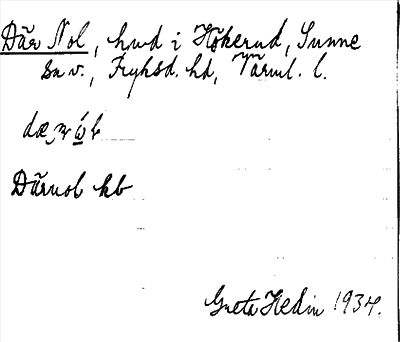 Där Nol, hmd i Högerud, Sunne
sn v., Fryksd. hd, Värml. l.
Därnol kb
Greta Hedin 1934.